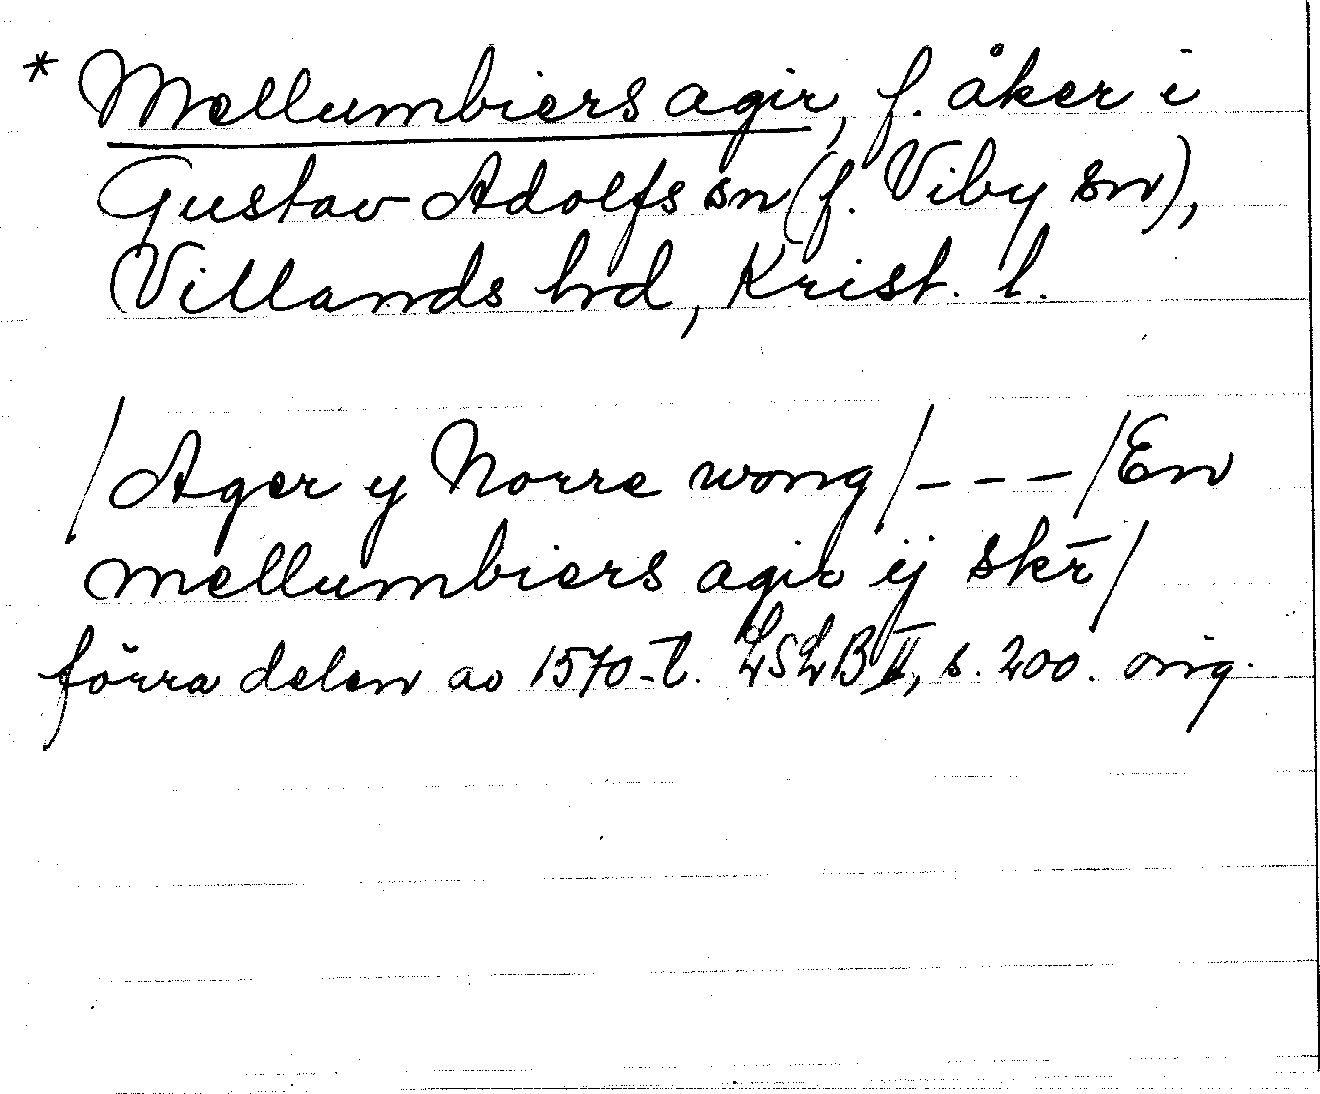 * Mellumbiers agir, f. åker i
Gustav Adolfs sn (f. Viby sn),
Villands hd, Krist. l.
/Ager y Norre wong/ - - - /En
mellumbiers agir ij skr̄/
förra delen av 1570-t. LSLB II, s. 200. orig.